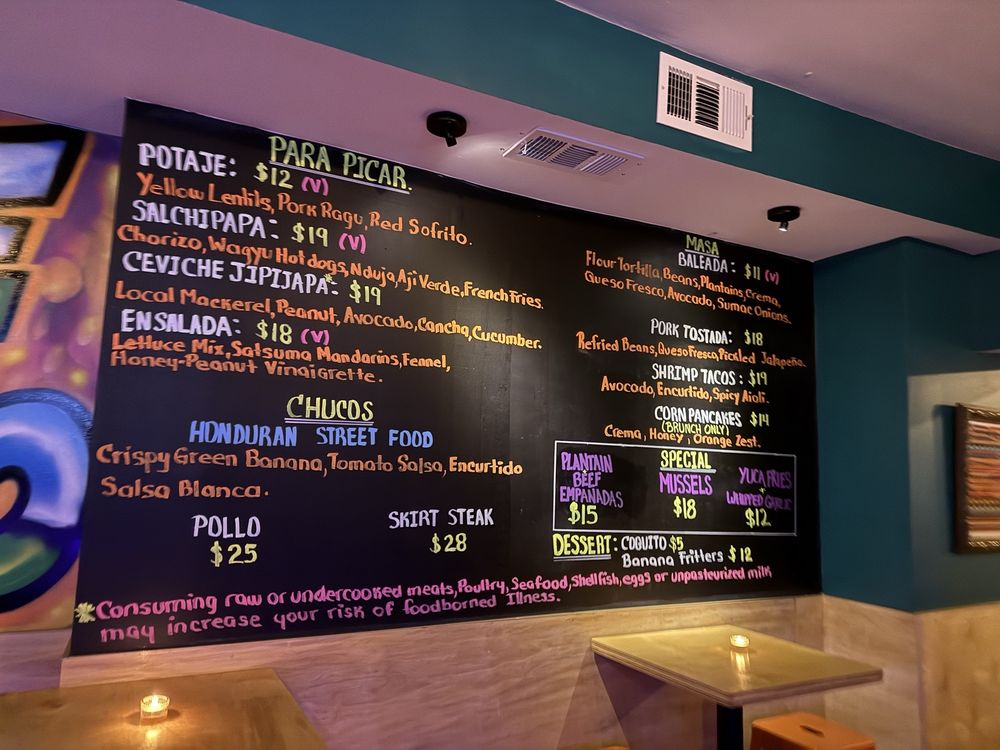 PARA PICAR.
POTAJE: $12 (V)
Yellow Lentils, Pork Ragu, Red Sofrito.
SALCHIPAPA: $19 (V)
Chorizo, Wagyu Hotdogs, Nduja, Aji Verde, French Fries.
CEVICHE JIPIJAPA*: $19
Local Mackerel, Peanut, Avocado, Cancha, Cucumber.
ENSALADA: $18 (V)
Lettuce Mix, Satsuma Mandarins, Fennel,
Honey-Peanut Vinaigrette.
CHUCOS
HONDURAN STREET FOOD
Crispy Green Banana, Tomato Salsa, Encurtido
Salsa Blanca.
POLLO
$25
SKIRT STEAK
$28
MASA
BALEADA: $11 (V)
Flour Tortilla, Beans, Plantains, Crema,
Queso Fresco, Avocado, Sumac Onions.
PORK TOSTADA: $18
Refried Beans, Queso Fresco, Pickled Jalapeño.
SHRIMP TACOS: $19
Avocado, Encurtido, Spicy Aioli.
CORN PANCAKES $14
(BRUNCH ONLY)
Crema, Honey, Orange Zest.
SPECIAL
PLANTAIN
BEEF
EMPANADAS
$15
MUSSELS
$18
YUCA FRIES
WHIPPED GARLIC
$12
DESSERT: COQUITO $5
Banana Fritters $12
*Consuming raw or undercooked meats, Poultry, Seafood, Shellfish, eggs or unpasteurized milk
may increase your risk of foodborned Illness.